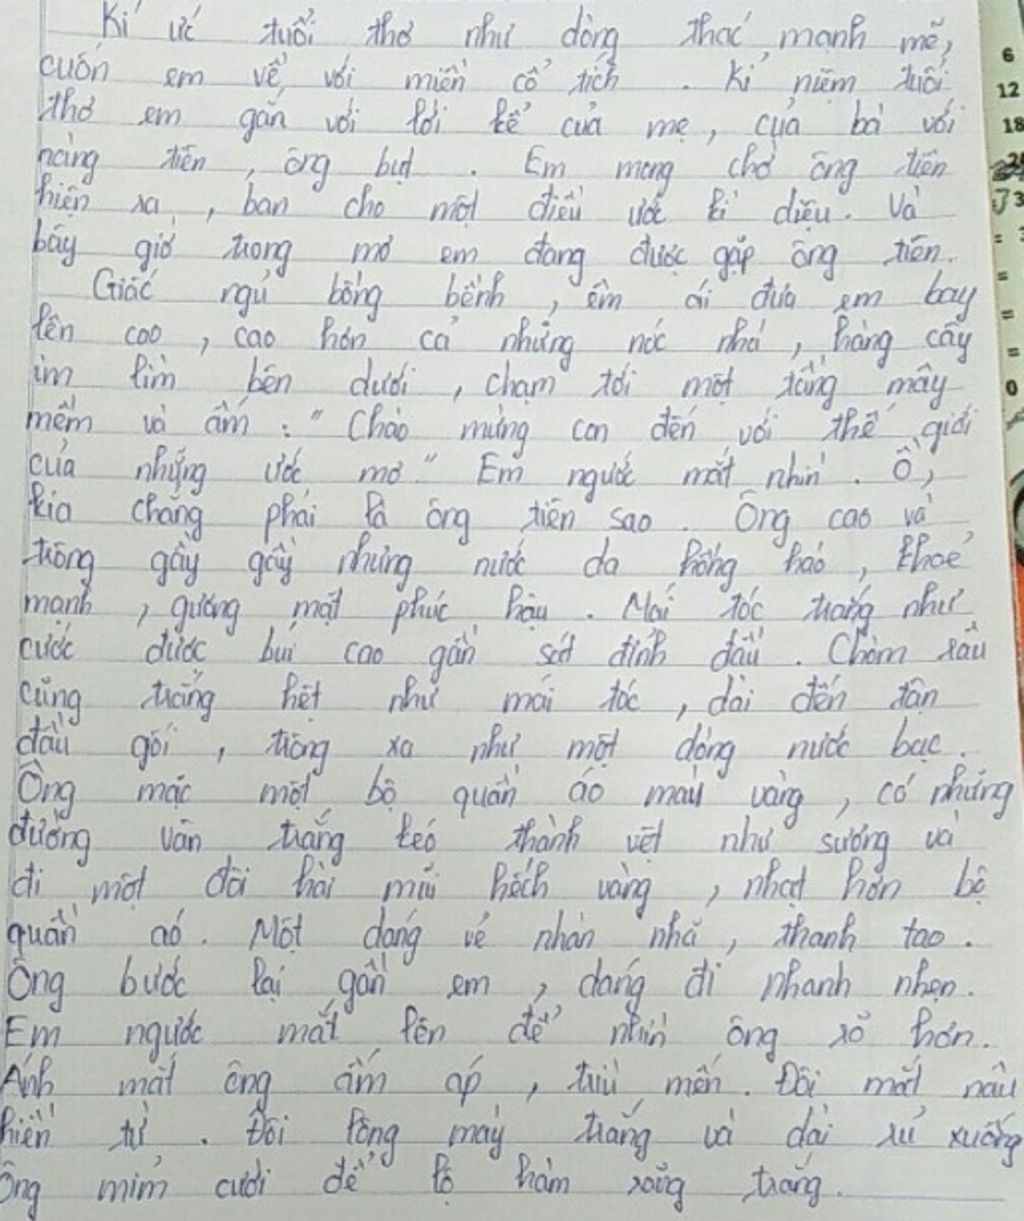 Kí ức tuổi thơ như dòng thác mạnh mẽ,
cuốn em về với miền cổ tích. Kỉ niệm tuổi
thơ em gắn với lời kể của mẹ, của bà với
nàng tiên, ông bụt. Em mong chờ ông tiên
hiện ra, ban cho một điều ước kì diệu. Và
bây giờ trong mơ em đang được gặp ông tiên.
Giấc ngủ bồng bềnh, êm ái đưa em bay
lên cao, cao hơn cả những nóc nhà, hàng cây
im lìm bên dưới, chạm tới một tầng mây
mềm và ấm: "Chào mừng con đến với thế giới
của những ước mơ." Em ngước mắt nhìn. Ồ,
kia chẳng phải là ông tiên sao. Ông cao và
trông gầy gầy nhưng nước da hồng hào, khoẻ
mạnh, gương mặt phúc hậu. Mái tóc trắng như
cước được búi cao gần sát đỉnh đầu. Chòm râu
cũng trắng hệt như mái tóc, dài đến tận
đầu gối, trông xa như một dòng nước bạc.
Ông mặc một bộ quần áo màu vàng, có những
đường vân trắng kéo thành vệt như sương và
đi một đôi hài mũi hếch vàng, nhạt hơn bộ
quần áo. Một dáng vẻ nhàn nhã, thanh tao.
Ông bước lại gần em, dáng đi nhanh nhẹn.
Em ngước mắt lên để nhìn ông rõ hơn.
Ánh mắt ông ấm áp, trìu mến. Đôi mắt nâu
hiền từ. Đôi lông mày trắng và dài rủ xuống
Ông mỉm cười để lộ hàm răng trắng.
6
12
18
3
=
=
=
0